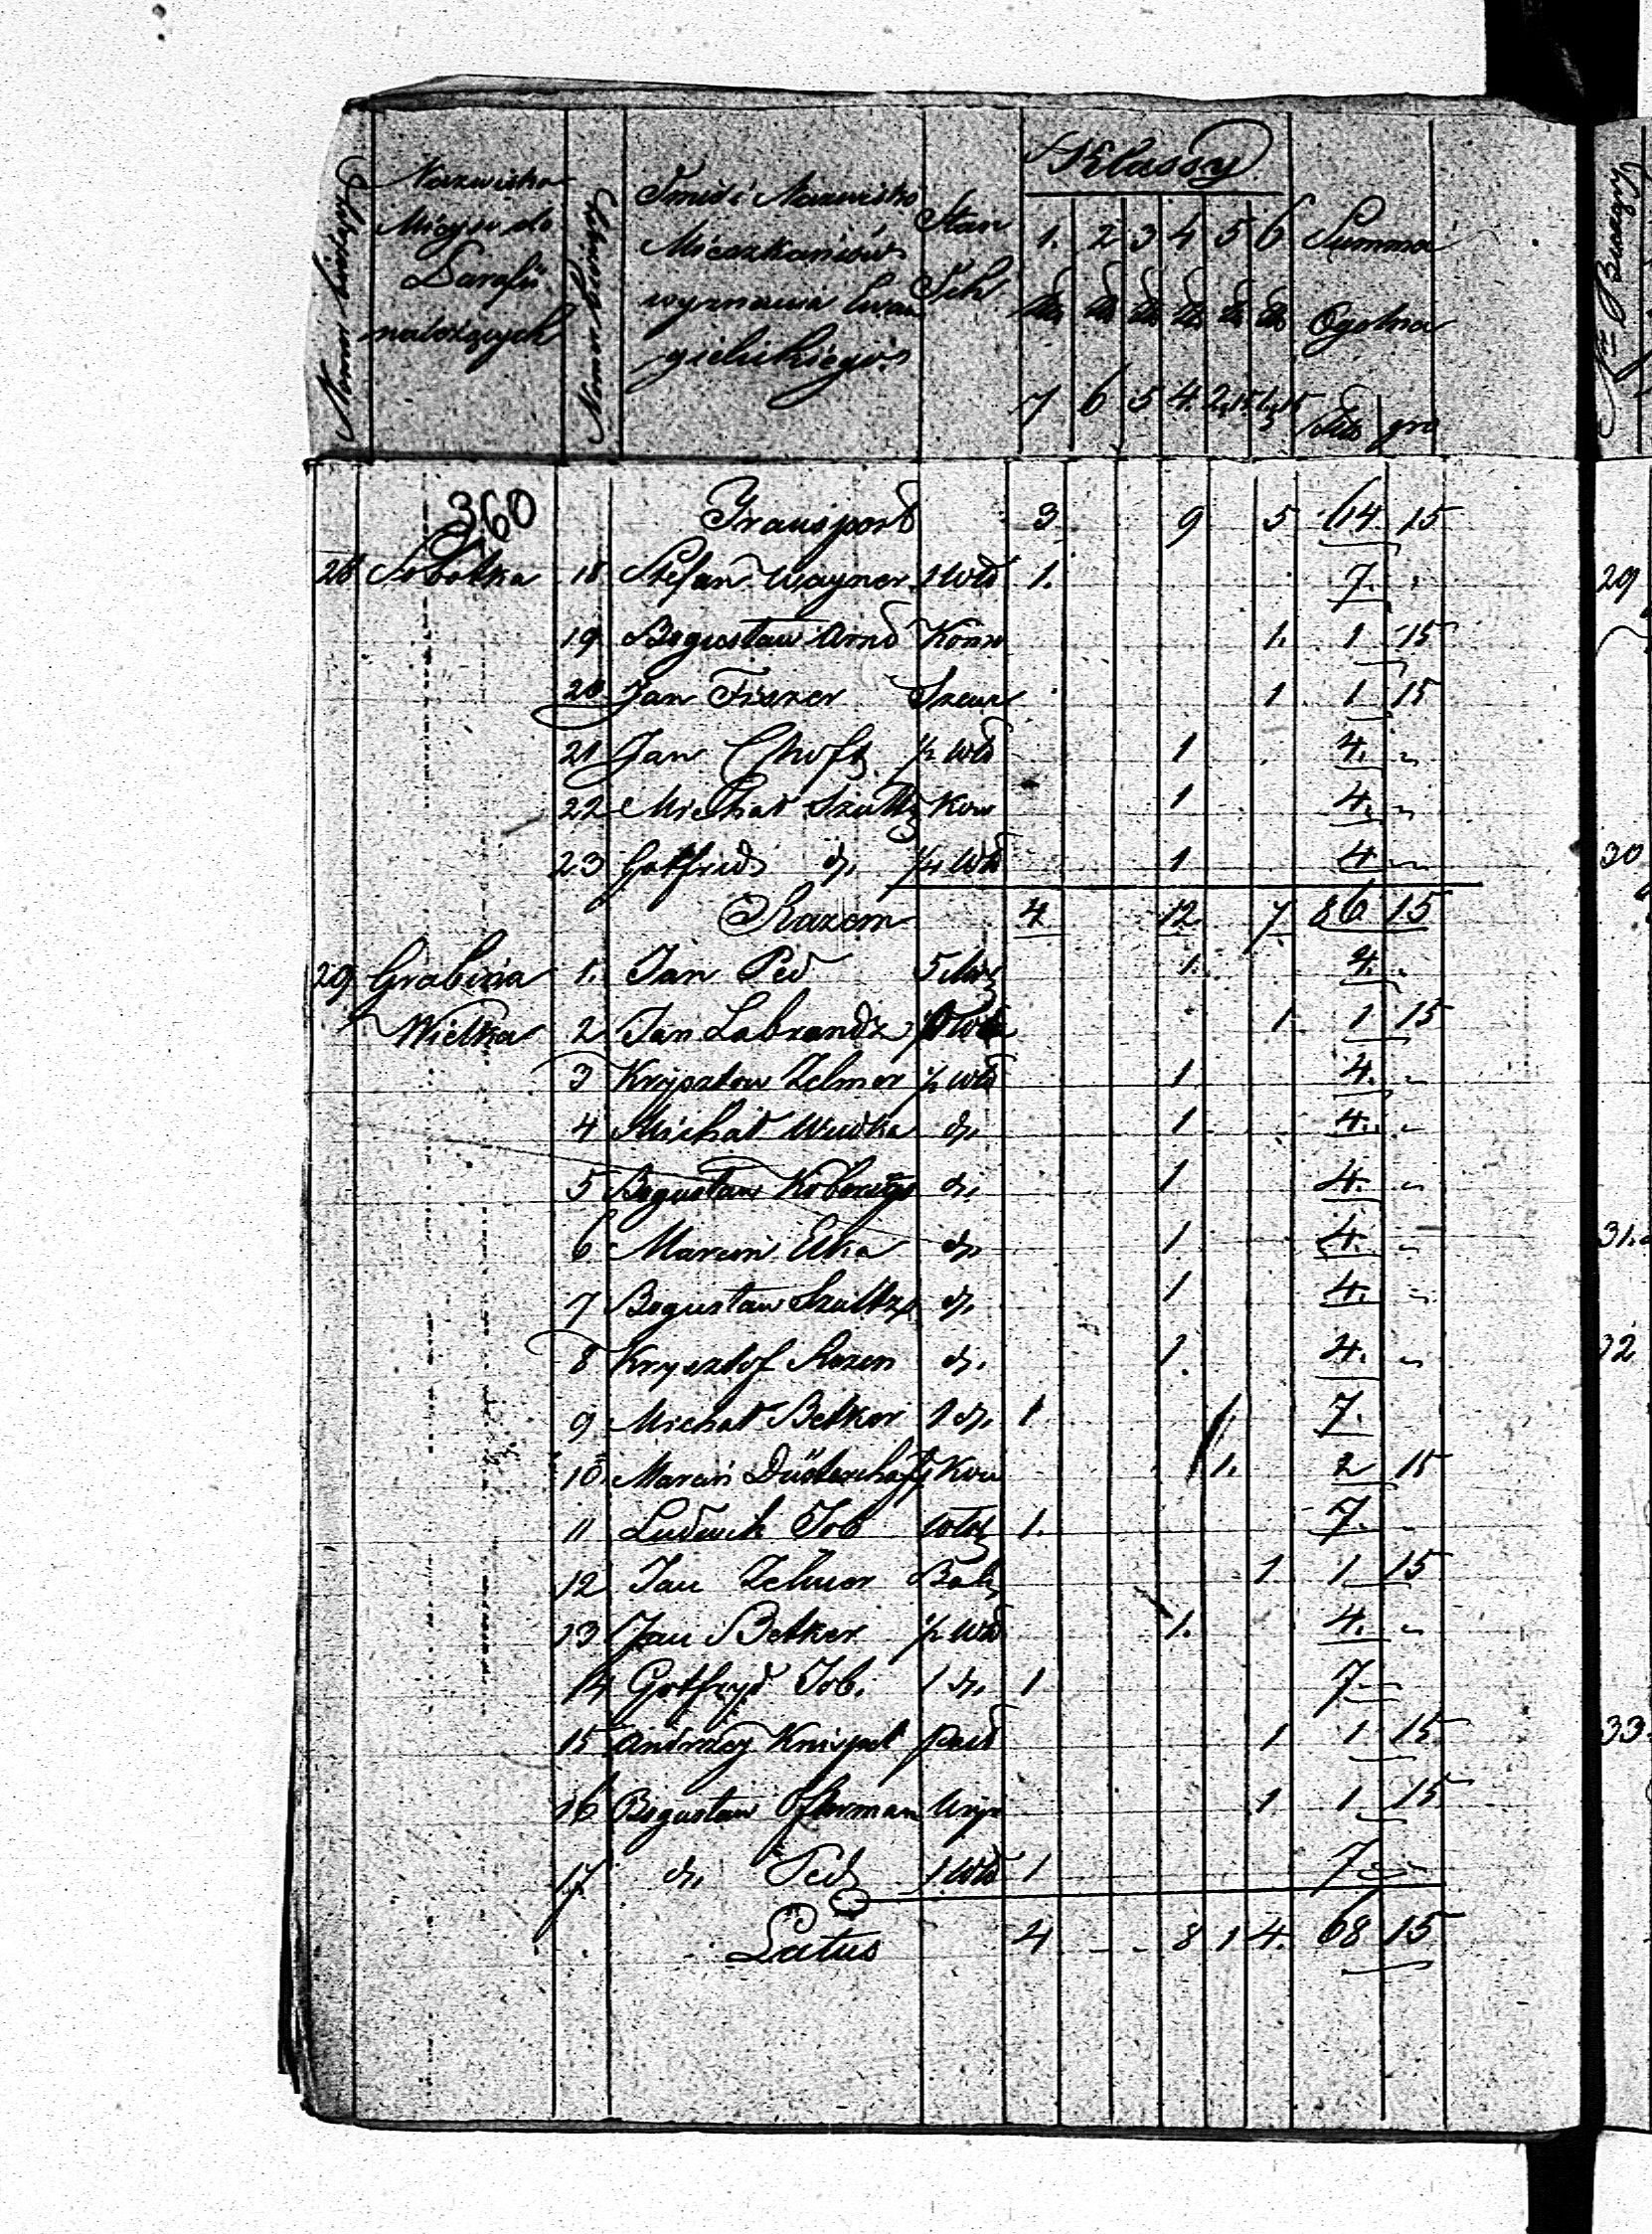 Numer bieżący
Nazwiska Mieysc do Parafii należących
Numer bieżący
Imie i Nazwisko Mieszkańców wyznania Ewangielickiego
Stan Ich
Klassy
1. 2 3 4 5 6
7 6 5 4. 2,15 1,15
Summa Ogolna
gro
360
Transport 3 9 5 64 15
28 Sobotka 18 Stefan Wayner 1 Wło 1. 7.
19 Bogusław Arnd Kom 1. 1 15
20 Jan Fiszer 1 1 15
21 Jan ½ Wło 1 4. "
22 Michał Szultz Kow 1 4. "
23 Gotfrid do ½ Wło 1 4 "
Razem 4 12. 7 86 15
29 Grabina 1. Jan Ped 1. 4.
Wielka 2 Jan Labrandz 1 1 15
3 Krysztow Zelmer ½ Wło 1 4. "
4 Michał Wudka do 1 4. "
5 Bogusław do 1 4. "
6 Marcin Elka do 1 4. "
7 Bogusław Szultz do 1 4. "
8 Krysztof Rozen do 1. 4. "
9 Michał Betker 1 do 1 7.
10. Marcin Düsterhaft Kow 1. 2 15
11 Ludwik Job 1. 7. "
12 Jan Zelmer 1 1 15
13 Jan Betker ½ Wło 1. 4. "
14 Gotfryd Job. 1 do 1 7 "
15 Andrzey Knispel 1 1 15
16 Bogusław 1 1 15
17 do Ped 1 Wło 1 7 "
Latus 4 - - 8 1 4. 68 15
29
30
31.
32
33